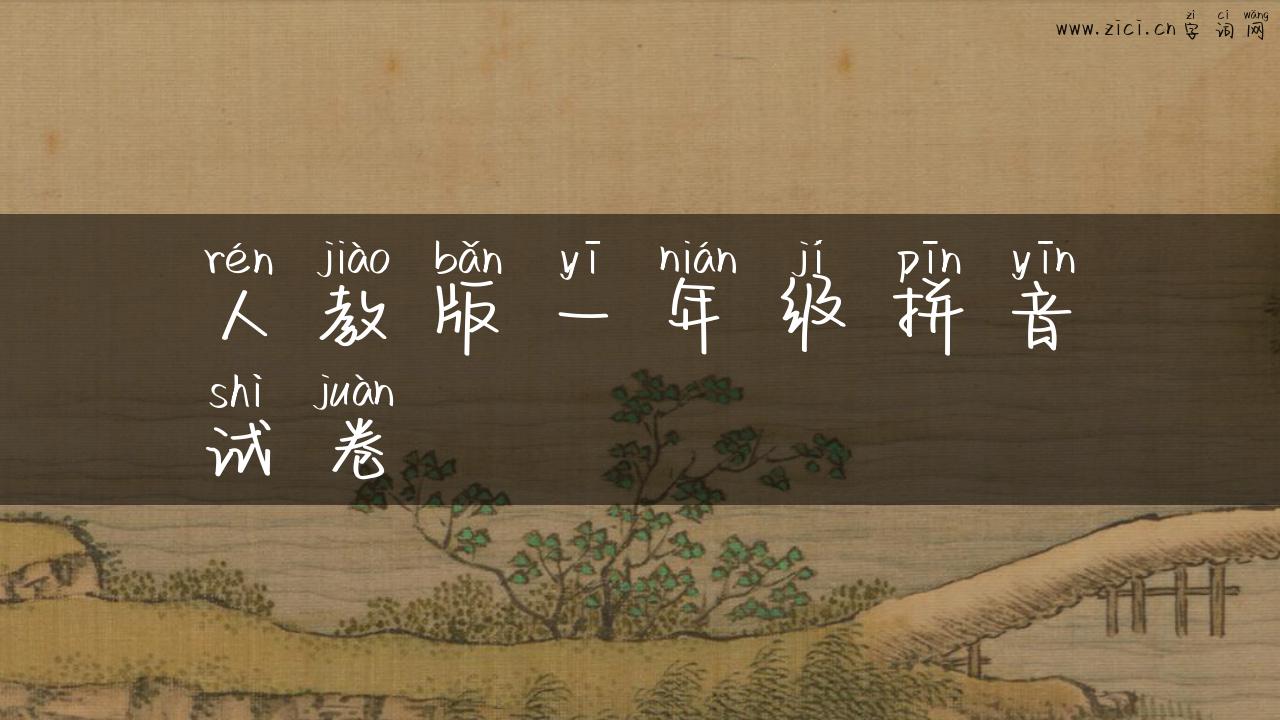 zì cí wǎng
www.zici.cn 字词网
rén jiào bǎn yī nián jí pīn yīn
人教版一年级拼音
shì juàn
试卷